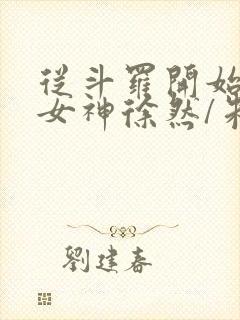 從斗羅開始
女神徐然/
劉建春